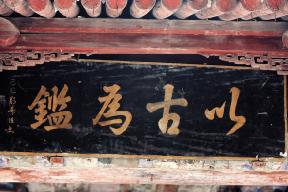 以古為鑑